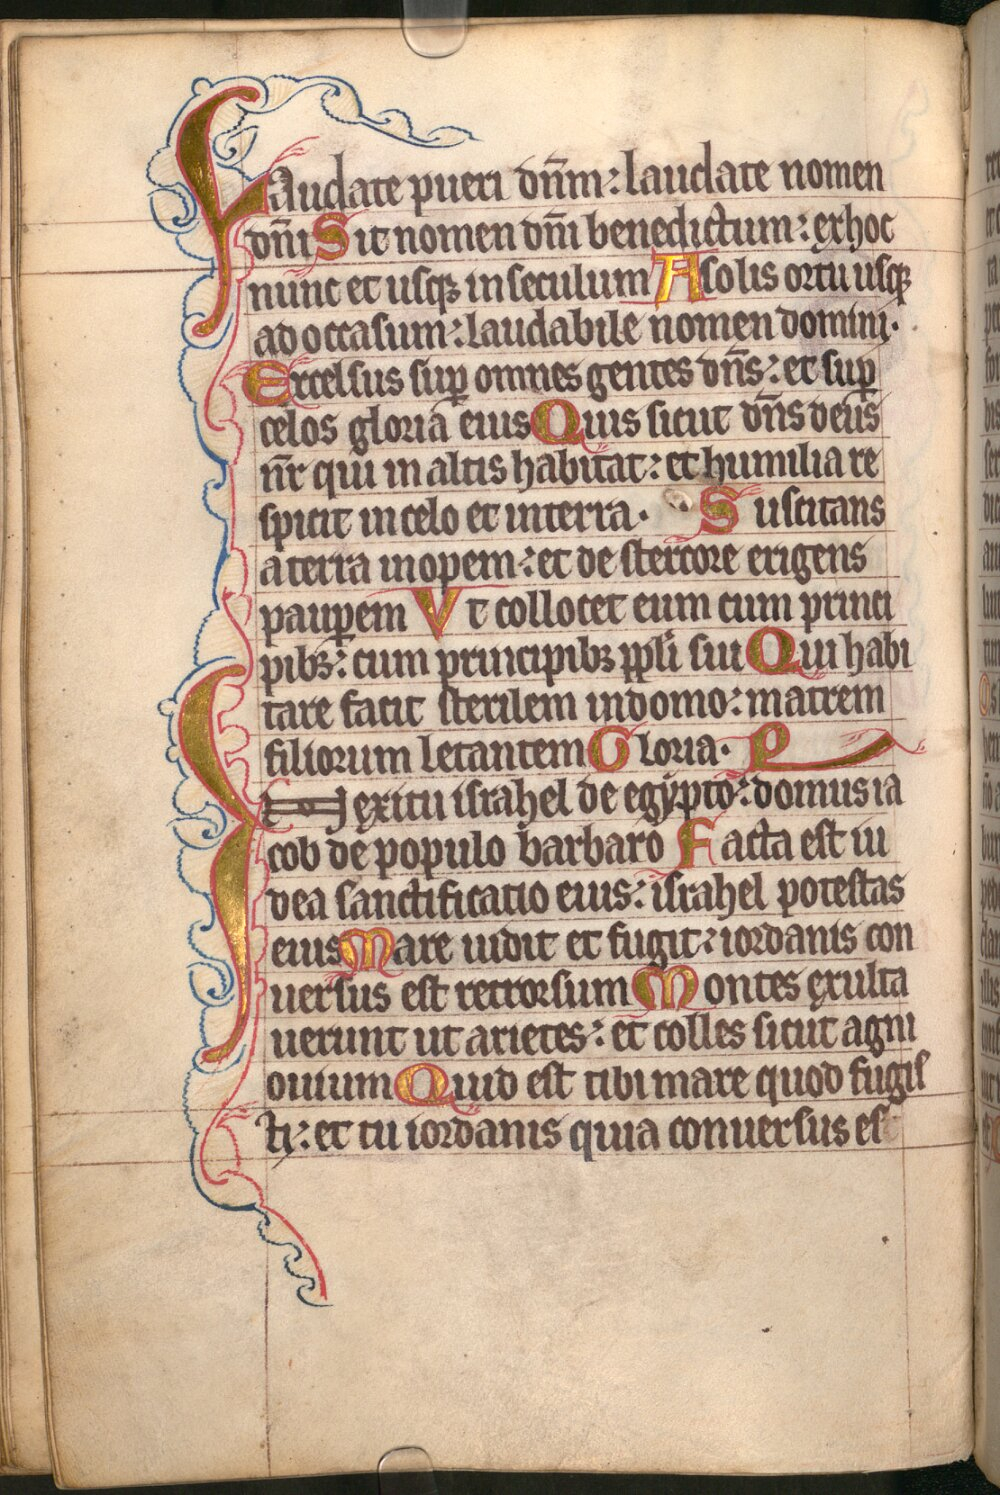 Laudate pueri dn̄m: laudate nomen
dn̄i Sit nomen dn̄i benedictum: exhoc
nunc et usqꝫ in seculum A solis ortu usqꝫ
ad occasum: laudabile nomen domini.
Excelsus suꝑ omnes gentes dn̄s: et suꝑ
celos gloria eius Quis sicut dn̄s deus
nr̄ qui in altis habitat: et humilia re
spicit in celo et in terra. Suscitans
a terra inopem: et de stercore erigens
pauꝑem Vt collocet eum cum princi
pibꝫ: cum principibꝫ ppl̄i sui Qui habi
tare facit sterilem in domo: matrem
filiorum letantem Gloria.
In exitu israhel de egypto: domus ia
cob de populo barbaro Facta est iu
dea sanctificatio eius: israhel potestas
eius Mare uidit et fugit: iordanis con
uersus est retrorsum Montes exulta
uerunt ut arietes: et colles sicut agni
ouium Quid est tibi mare quod fugis
ti: et tu iordanis quia conuersus es